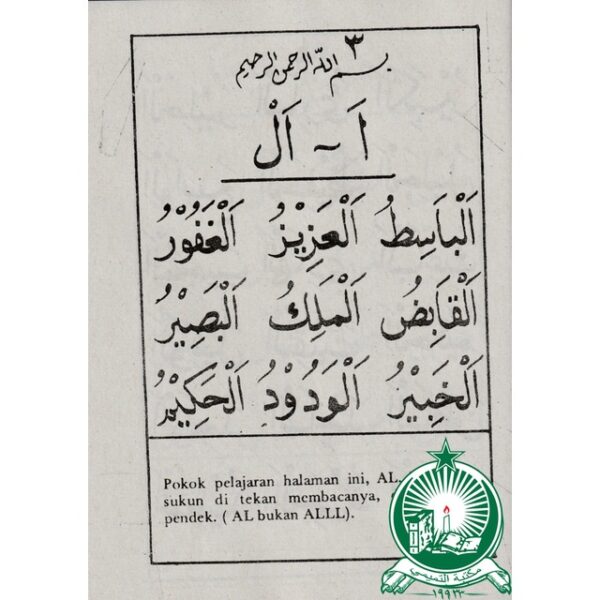 ٣
بسم الله الرحمن الرحيم
اَ - اَلْ
اَلْبَاسِطُ اَلْعَزِيْزُ اَلْغَفُوْرُ
اَلْقَابِضُ اَلْمَلِكُ اَلْبَصِيْرُ
اَلْخَبِيْرُ اَلْوَدُوْدُ اَلْحَكِيْمُ
Pokok pelajaran halaman ini, AL
sukun di tekan membacanya,
pendek. ( AL bukan ALLL).
مكتبة التميمي